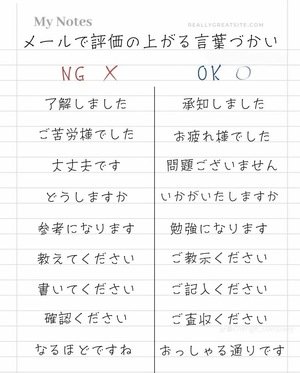 My Notes
REALLYGREATSITE.COM
メールで評価の上がる言葉づかい
NG X OK ○
了解しました 承知しました
ご苦労様でした お疲れ様でした
大丈夫です 問題ございません
どうしますか いかがいたしますか
参考になります 勉強になります
教えてください ご教示ください
書いてください ご記入ください
確認ください ご査収ください
なるほどですね おっしゃる通りです